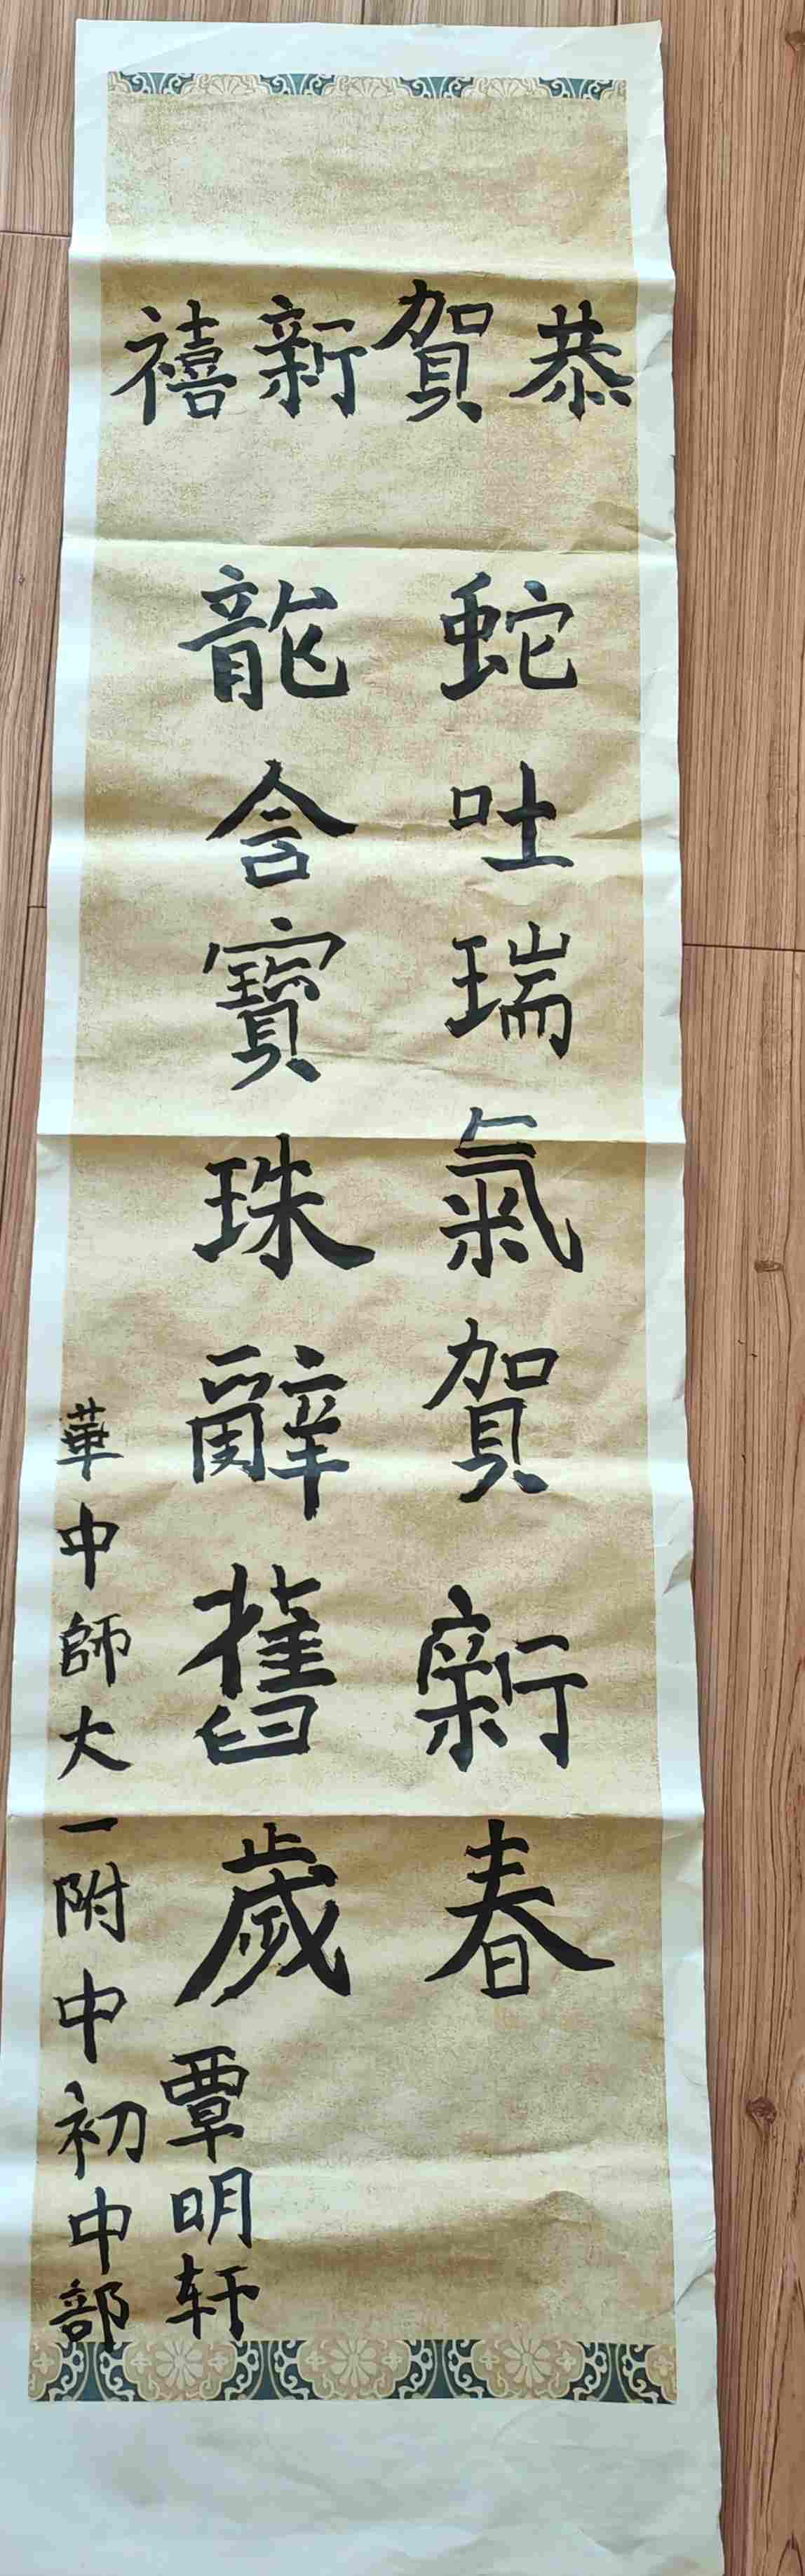 恭賀新禧
蛇吐瑞氣賀新春
龍含寶珠辭舊歲
覃明轩
華中師大一附中初中部